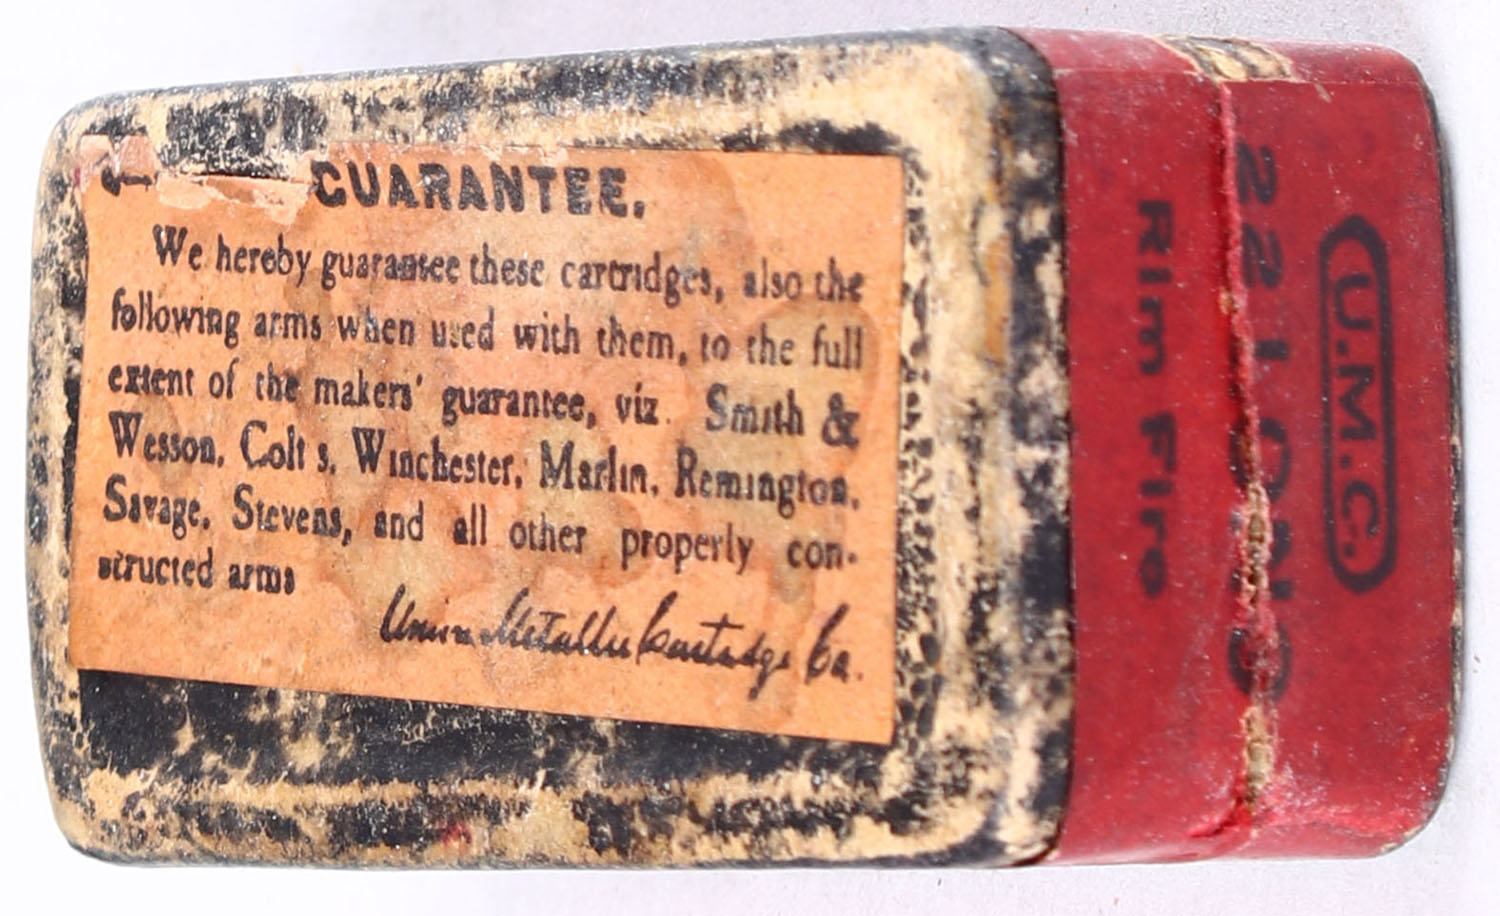 GUARANTEE.
We hereby guarantee these cartridges, also the
following arms when used with them, to the full
extent of the makers' guarantee, viz. Smith &
Wesson, Colt's, Winchester, Marlin, Remington,
Savage, Stevens, and all other properly con-
structed arms
Union Metallic Cartridge Co.
U.M.C.
22 LONG
Rim Fire